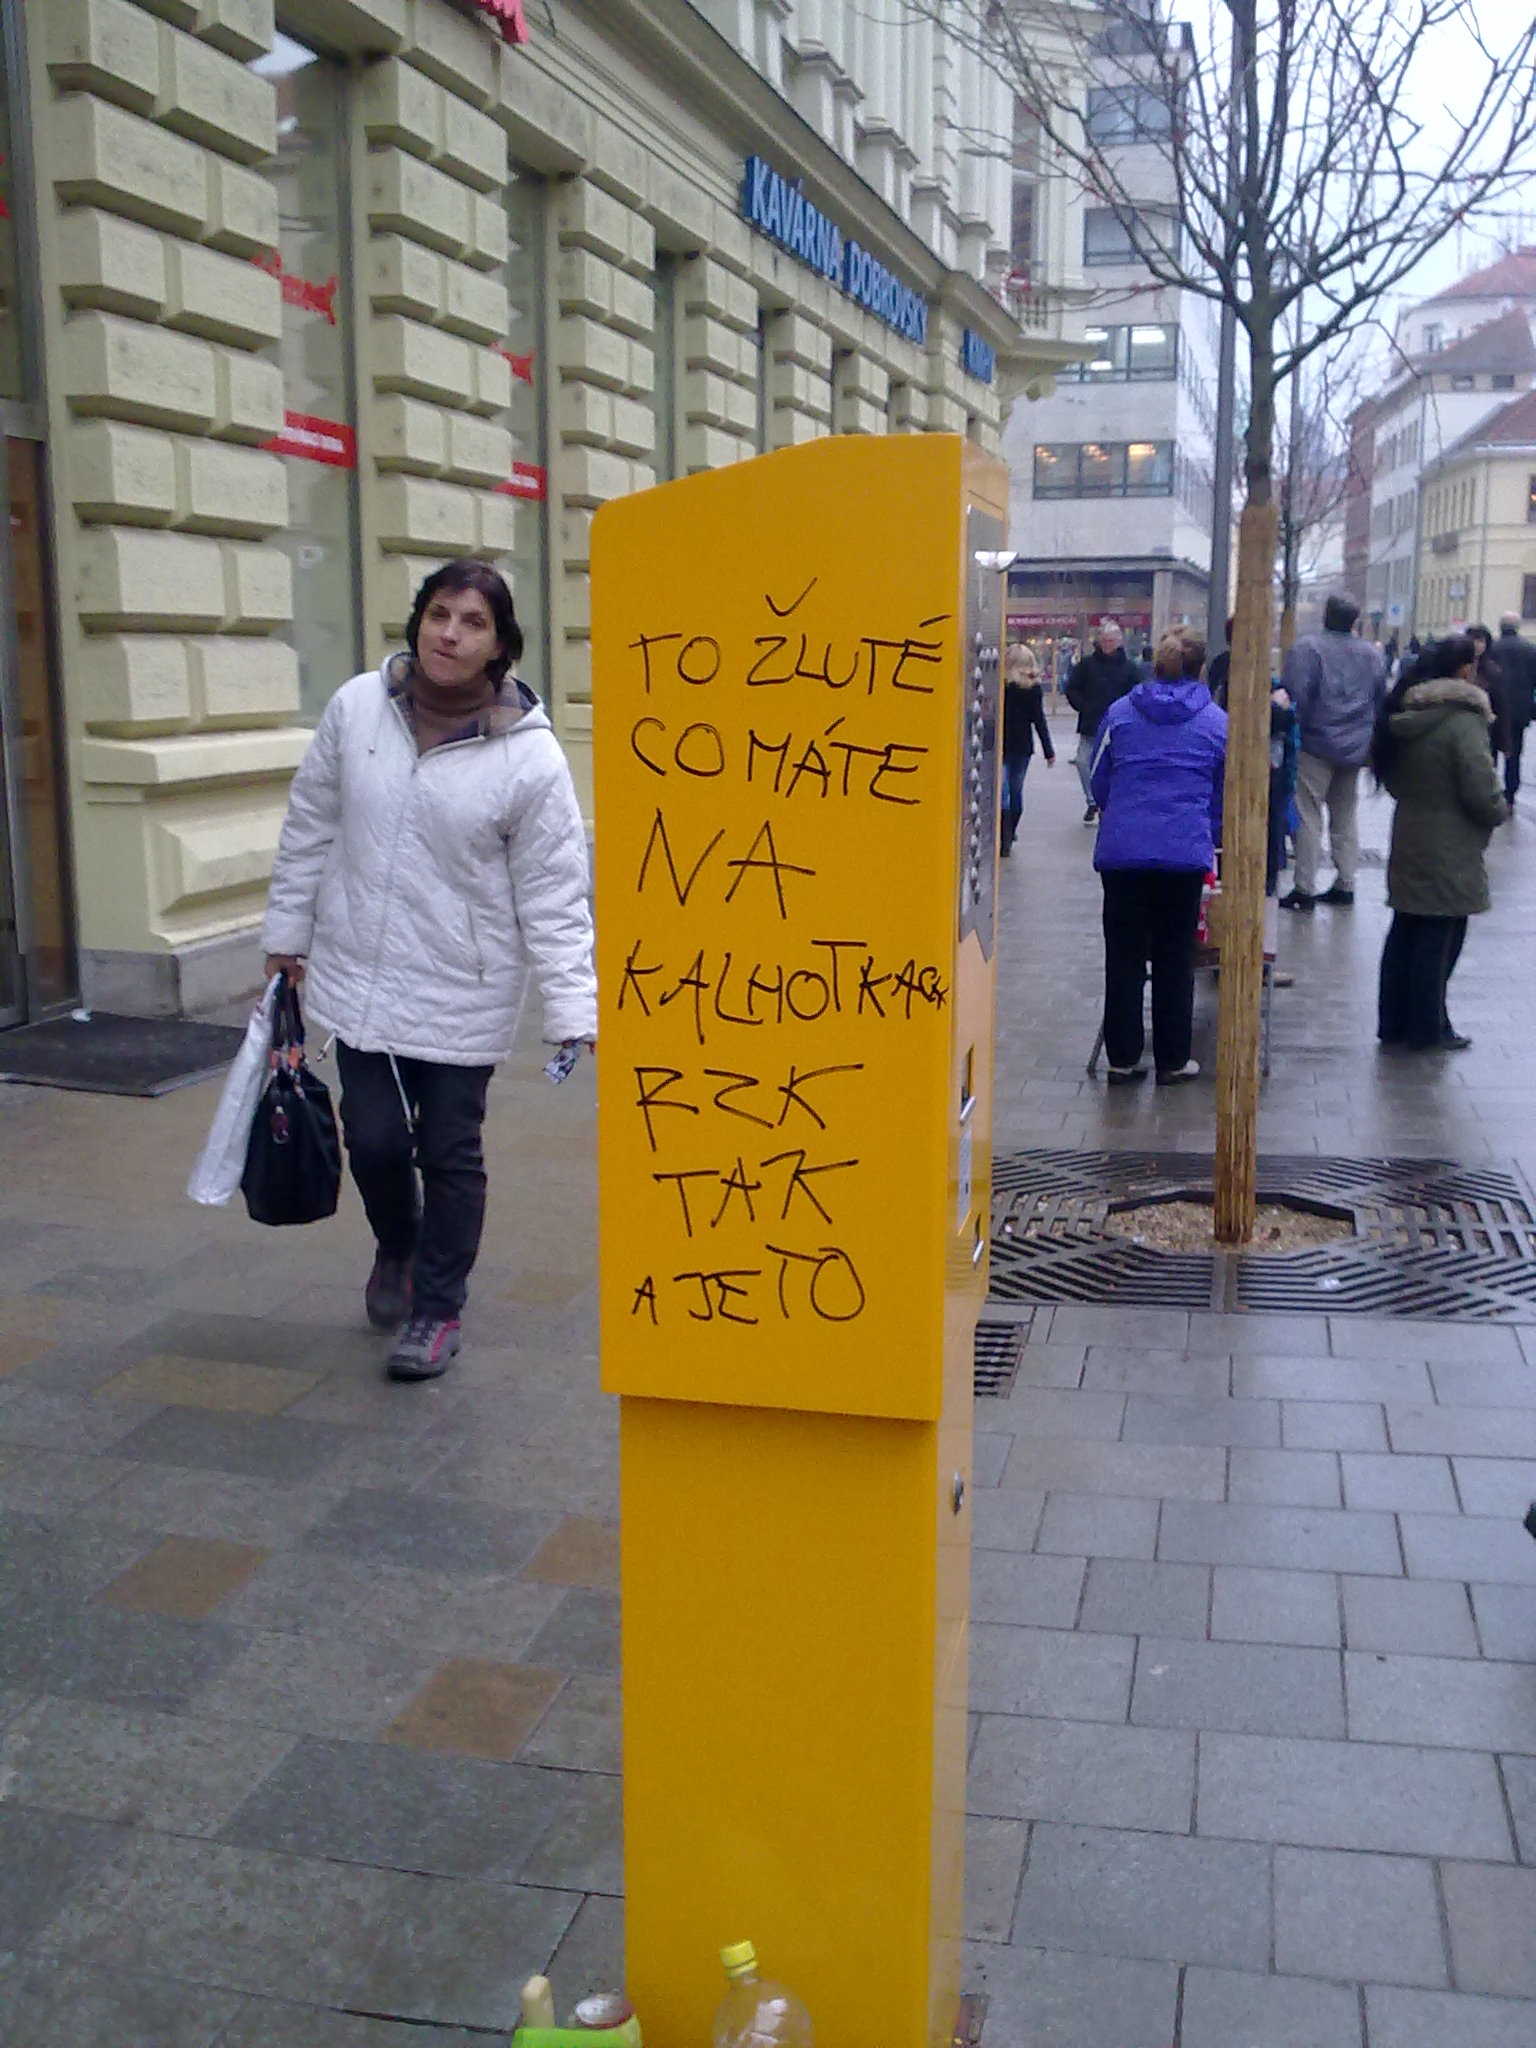 KAVÁRNA DOBROVSKÝ
TO ŽLUTÉ
CO MÁTE
NA
KALHOTKACH
RZK
TAK
A JE TO